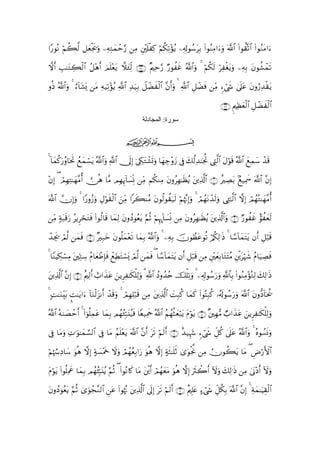 ءَامَنُوا۟ ٱتَّقُوا۟ ٱللَّهَ وَءَامِنُوا۟ بِرَسُولِهِۦ يُؤْتِكُمْ كِفْلَيْنِ مِن رَّحْمَتِهِۦ وَيَجْعَل لَّكُمْ نُورًا
تَمْشُونَ بِهِۦ وَيَغْفِرْ لَكُمْ ۚ وَٱللَّهُ غَفُورٌ رَّحِيمٌ ﴿٢٨﴾ لِّئَلَّا يَعْلَمَ أَهْلُ ٱلْكِتَٰبِ أَلَّا
يَقْدِرُونَ عَلَىٰ شَىْءٍ مِّن فَضْلِ ٱللَّهِ ۙ وَأَنَّ ٱلْفَضْلَ بِيَدِ ٱللَّهِ يُؤْتِيهِ مَن يَشَآءُ ۚ وَٱللَّهُ ذُو
ٱلْفَضْلِ ٱلْعَظِيمِ ﴿٢٩﴾
سورة: المجادلة
بِسْمِ ٱللَّهِ ٱلرَّحْمَٰنِ ٱلرَّحِيمِ
قَدْ سَمِعَ ٱللَّهُ قَوْلَ ٱلَّتِى تُجَٰدِلُكَ فِى زَوْجِهَا وَتَشْتَكِىٓ إِلَى ٱللَّهِ وَٱللَّهُ يَسْمَعُ تَحَاوُرَكُمَآ ۚ
إِنَّ ٱللَّهَ سَمِيعٌۢ بَصِيرٌ ﴿١﴾ ٱلَّذِينَ يُظَٰهِرُونَ مِنكُم مِّن نِّسَآئِهِم مَّا هُنَّ أُمَّهَٰتِهِمْ ۖ إِنْ
أُمَّهَٰتُهُمْ إِلَّا ٱلَّٰٓـِٔى وَلَدْنَهُمْ ۚ وَإِنَّهُمْ لَيَقُولُونَ مُنكَرًا مِّنَ ٱلْقَوْلِ وَزُورًا ۚ وَإِنَّ ٱللَّهَ
لَعَفُوٌّ غَفُورٌ ﴿٢﴾ وَٱلَّذِينَ يُظَٰهِرُونَ مِن نِّسَآئِهِمْ ثُمَّ يَعُودُونَ لِمَا قَالُوا۟ فَتَحْرِيرُ رَقَبَةٍ مِّن
قَبْلِ أَن يَتَمَآسَّا ۚ ذَٰلِكُمْ تُوعَظُونَ بِهِۦ ۚ وَٱللَّهُ بِمَا تَعْمَلُونَ خَبِيرٌ ﴿٣﴾ فَمَن لَّمْ يَجِدْ
فَصِيَامُ شَهْرَيْنِ مُتَتَابِعَيْنِ مِن قَبْلِ أَن يَتَمَآسَّا ۖ فَمَن لَّمْ يَسْتَطِعْ فَإِطْعَامُ سِتِّينَ مِسْكِينًا ۚ
ذَٰلِكَ لِتُؤْمِنُوا۟ بِٱللَّهِ وَرَسُولِهِۦ ۚ وَتِلْكَ حُدُودُ ٱللَّهِ ۗ وَلِلْكَٰفِرِينَ عَذَابٌ أَلِيمٌ ﴿٤﴾ إِنَّ ٱلَّذِينَ
يُحَآدُّونَ ٱللَّهَ وَرَسُولَهُۥ كُبِتُوا۟ كَمَا كُبِتَ ٱلَّذِينَ مِن قَبْلِهِمْ ۚ وَقَدْ أَنزَلْنَآ ءَايَٰتٍۭ بَيِّنَٰتٍ ۚ
وَلِلْكَٰفِرِينَ عَذَابٌ مُّهِينٌ ﴿٥﴾ يَوْمَ يَبْعَثُهُمُ ٱللَّهُ جَمِيعًا فَيُنَبِّئُهُم بِمَا عَمِلُوٓا۟ ۚ أَحْصَىٰهُ ٱللَّهُ
وَنَسُوهُ ۚ وَٱللَّهُ عَلَىٰ كُلِّ شَىْءٍ شَهِيدٌ ﴿٦﴾ أَلَمْ تَرَ أَنَّ ٱللَّهَ يَعْلَمُ مَا فِى ٱلسَّمَٰوَٰتِ وَمَا فِى
ٱلْأَرْضِ ۖ مَا يَكُونُ مِن نَّجْوَىٰ ثَلَٰثَةٍ إِلَّا هُوَ رَابِعُهُمْ وَلَا خَمْسَةٍ إِلَّا هُوَ سَادِسُهُمْ
وَلَآ أَدْنَىٰ مِن ذَٰلِكَ وَلَآ أَكْثَرَ إِلَّا هُوَ مَعَهُمْ أَيْنَ مَا كَانُوا۟ ۖ ثُمَّ يُنَبِّئُهُم بِمَا عَمِلُوا۟ يَوْمَ
ٱلْقِيَٰمَةِ ۚ إِنَّ ٱللَّهَ بِكُلِّ شَىْءٍ عَلِيمٌ ﴿٧﴾ أَلَمْ تَرَ إِلَى ٱلَّذِينَ نُهُوا۟ عَنِ ٱلنَّجْوَىٰ ثُمَّ يَعُودُونَ